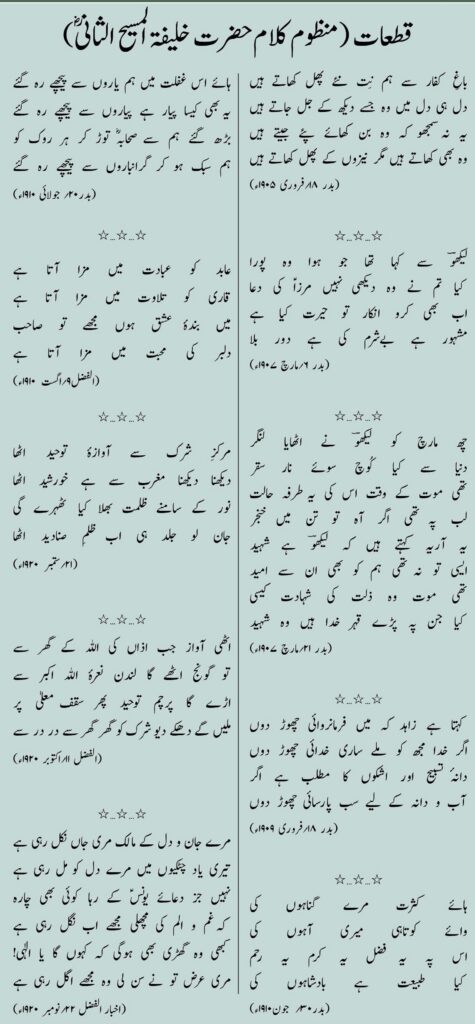 قطعات (منظوم کلام حضرت خلیفۃ المسیح الثانیؓ)
باغِ کفار سے ہم نِت نئے پھل کھاتے ہیں
دل ہی دل میں وہ جسے دیکھ کے جل جاتے ہیں
یہ نہ سمجھو کہ وہ بن کھائے پئے جیتے ہیں
وہ بھی کھاتے ہیں مگر نیزوں کے پھل کھاتے ہیں
(بدر ۱۸؍فروری ۱۹۰۵ء)
☆…☆…☆
لیکھو سے کہا تھا جو ہوا وہ پورا
کیا تم نے وہ دیکھی نہیں مرزاؑ کی دعا
اب بھی کرو انکار تو حیرت کیا ہے
مشہور ہے بےشرم کی ہے دور بلا
(بدر ۶؍مارچ ۱۹۰۷ء)
☆…☆…☆
چھ مارچ کو لیکھو نے اٹھایا لنگر
دنیا سے کیا کُوچ سوئے نار سقر
تھی موت کے وقت اس کی یہ طرفہ حالت
لب پہ تھی اگر آہ تو تن میں خنجر
یہ آریہ کہتے ہیں کہ لیکھو ہے شہید
ایسی تو نہ تھی ہم کو بھی ان سے امید
تھی موت وہ ذلت کی شہادت کیسی
کیا جن پہ پڑے قہر خدا ہیں وہ شہید
(بدر ۲۱؍مارچ ۱۹۰۷ء)
☆…☆…☆
کہتا ہے زاہد کہ میں فرمانروائی چھوڑ دوں
اگر خدا مجھ کو ملے ساری خدائی چھوڑ دوں
دانۂ تسبیح اور اشکوں کا مطلب ہے اگر
آب و دانہ کے لیے سب پارسائی چھوڑ دوں
(بدر ۱۸؍فروری ۱۹۰۹ء)
☆…☆…☆
ہائے کثرت مرے گناہوں کی
وائے کوتاہی میری آہوں کی
اس پہ یہ فضل یہ کرم یہ رحم
کیا طبیعت ہے بادشاہوں کی
(بدر ۳۰؍جون ۱۹۱۰ء)
ہائے اس غفلت میں ہم یاروں سے پیچھے رہ گئے
یہ بھی کیسا پیار ہے پیاروں سے پیچھے رہ گئے
بڑھ گئے ہم سے صحابہؓ توڑ کر ہر روک کو
ہم سبک ہو کر گرانباروں سے پیچھے رہ گئے
(بدر ۲۰؍ جولائی ۱۹۱۰ء)
☆…☆…☆
عابد کو عبادت میں مزا آتا ہے
قاری کو تلاوت میں مزا آتا ہے
میں بندۂ عشق ہوں مجھے تو صاحب
دلبر کی محبت میں مزا آتا ہے
(الفضل ۹؍اگست ۱۹۱۰ء)
☆…☆…☆
مرکزِ شرک سے آوازۂ توحید اٹھا
دیکھنا دیکھنا مغرب سے ہے خورشید اٹھا
نور کے سامنے ظلمت بھلا کیا ٹھہرے گی
جان لو جلد ہی اب ظلمِ صنادید اٹھا
(۲۱؍ستمبر ۱۹۲۰ء)
☆…☆…☆
اٹھی آواز جب اذاں کی اللہ کے گھر سے
تو گونج اٹھے گا لندن نعرۂ اللہ اکبر سے
اڑے گا پرچمِ توحید پھر سقفِ معلّٰی پر
ملیں گے دھکے دیوِ شرک کو گھر گھر سے در در سے
(الفضل ۱۱؍اکتوبر ۱۹۲۰ء)
☆…☆…☆
مرے جان و دل کے مالک مری جاں نکل رہی ہے
تیری یاد چٹکیوں میں مرے دل کو مل رہی ہے
نہیں جز دعائے یونسؑ کے رہا کوئی بھی چارہ
کہ غم و الم کی مچھلی مجھے اب نگل رہی ہے
کبھی وہ گھڑی بھی ہوگی کہ کہوں گا یا الٰہی!
مری عرض تو نے سن لی وہ مجھے اگل رہی ہے
(اخبار الفضل ۲۲؍نومبر ۱۹۲۰ء)